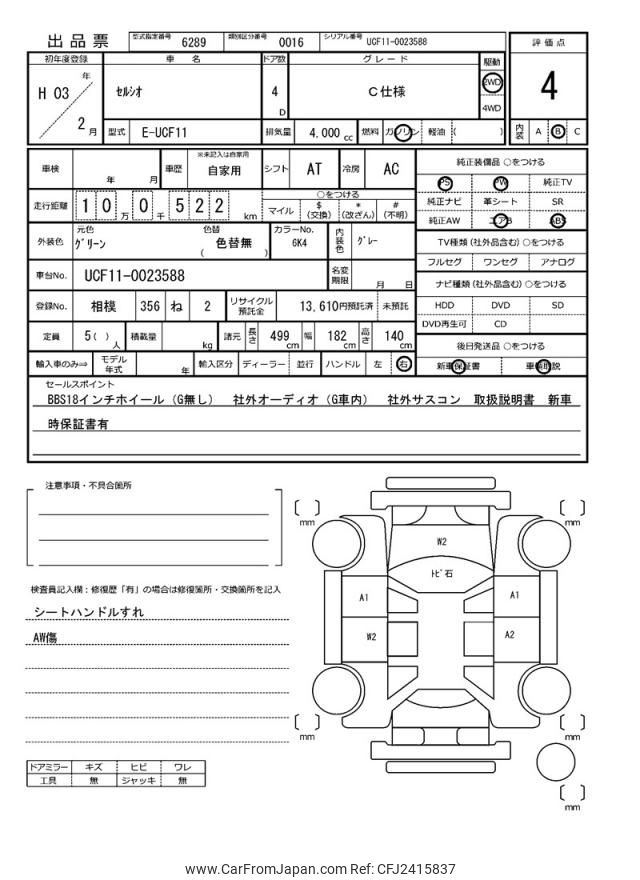 出品票 型式指定番号 6289 類別区分番号 0016 シリアル番号 UCF11-0023588
初年度登録 車名 ドア数 グレード 駆動 評価点
H 03 年 2 月 セルシオ 4 D C仕様 2WD 4WD 4
型式 E-UCF11 排気量 4,000 cc 燃料 ガソリン 軽油 ( ) 内装 A B C
車検 年 月 車歴 ※未記入は自家用 自家用 シフト AT 冷房 AC
走行距離 1 0 万 0 千 5 2 2 km ○をつける
マイル $ (交換) * (改ざん) # (不明)
外装色 元色 グリーン 色替 色替無 ( ) カラーNo. 6K4 内装色 グレー
車台No. UCF11-0023588 名変期限 月 日
登録No. 相模 356 ね 2 リサイクル預託金 13,610円預託済 未預託
定員 5( ) 人 積載量 kg 諸元 長さ 499 cm 幅 182 cm 高さ 140 cm
輸入車のみ⇒ モデル年式 年 輸入区分 ディーラー 並行 ハンドル 左 右
純正装備品 ○をつける
PS PW 純正TV
純正ナビ 革シート SR
純正AW エアB ABS
TV種類(社外品含む)○をつける
フルセグ ワンセグ アナログ
ナビ種類(社外品含む)○をつける
HDD DVD SD
DVD再生可 CD
後日発送品 ○をつける
新車保証書 車輌取説
セールスポイント
BBS18インチホイール(G無し) 社外オーディオ(G車内) 社外サスコン 取扱説明書 新車
時保証書有
注意事項・不具合箇所
検査員記入欄:修復歴「有」の場合は修復箇所・交換箇所を記入
シートハンドルすれ
AW傷
ドアミラー キズ ヒビ ワレ
工具 無 ジャッキ 無
[ ] mm [ ] mm
W2
トビ石
A1 A1
W2 A2
[ ] mm [ ] mm
[ ] mm
www.CarFromJapan.com Ref: CFJ2415837